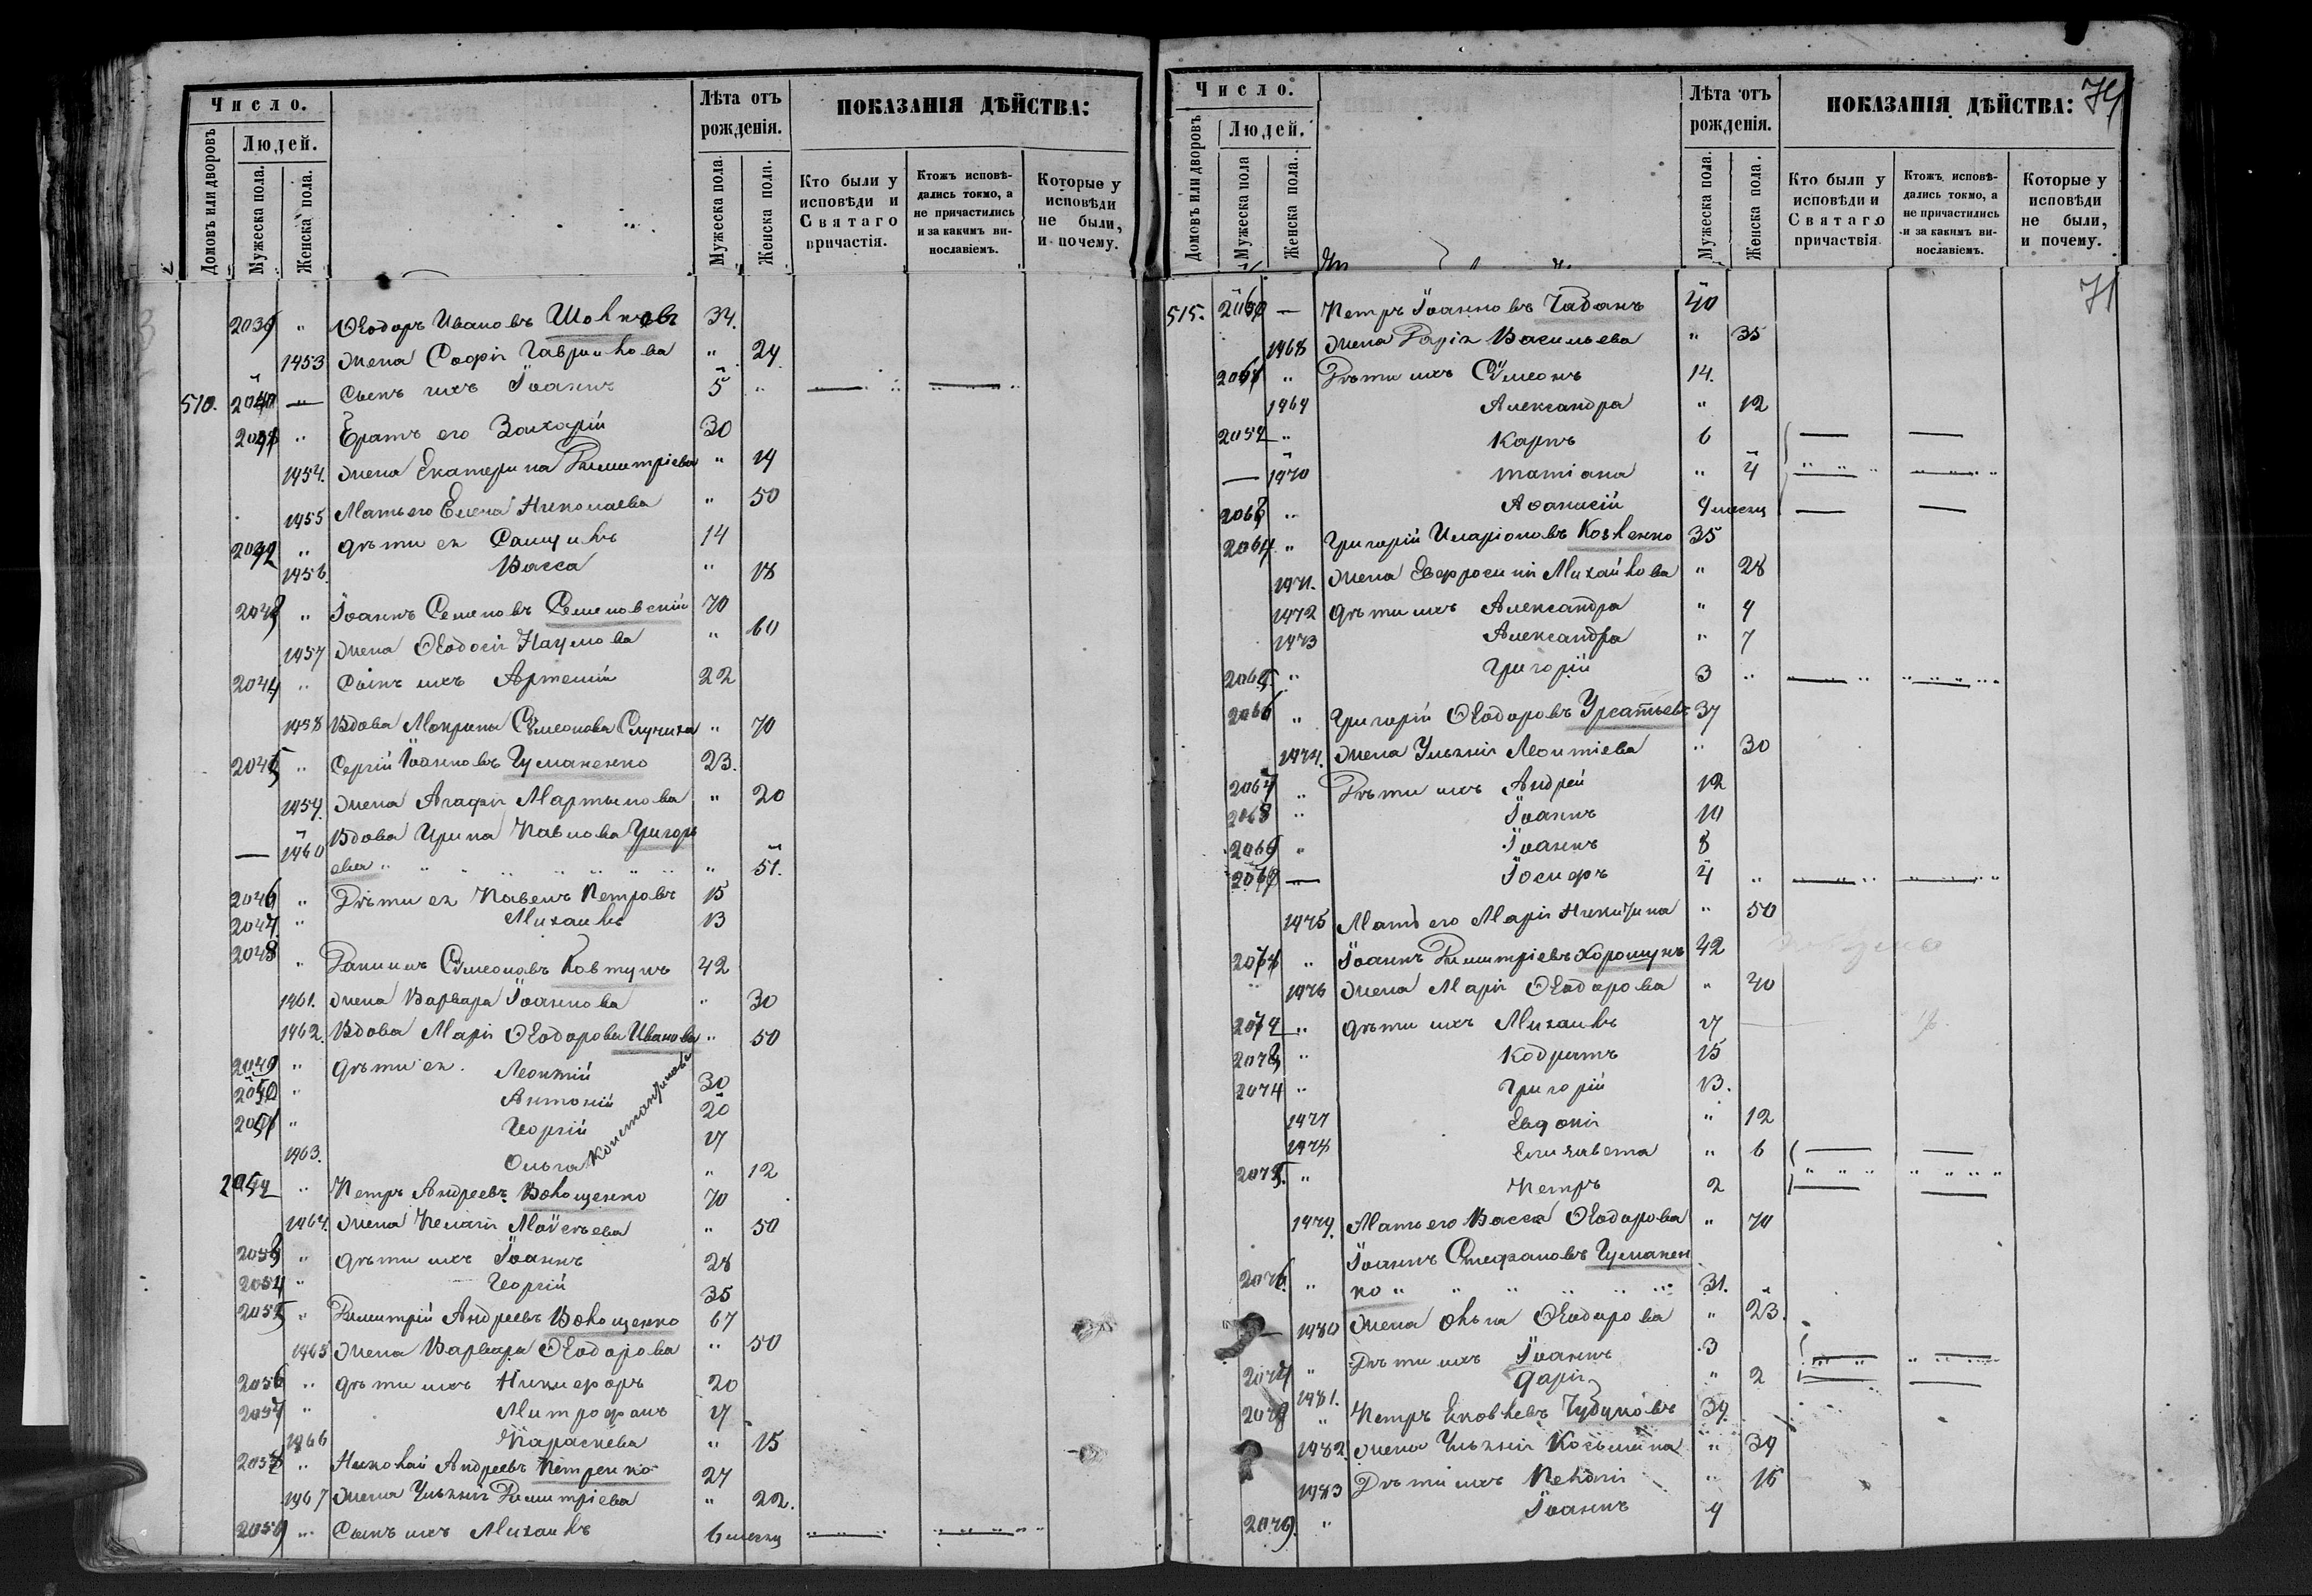 Число.
Людей.
Домовъ или дворовъ
Мужеска пола.
Женска пола.
Лѣта отъ рожденія.
Мужеска пола
Женска пола.
ПОКАЗАНІЯ ДѢЙСТВА:
Кто были у исповѣди и Святаго причастія.
Ктожъ исповѣдались токмо, а не причастились и за какимъ винославіемъ.
Которые у исповѣди не были, и почему.
2039 " Ѳеодоръ Ивановъ 34.
1453 жена Софія Гавриилова " 24
510. 2040 — Сынъ ихъ Іоаннъ 5 "
2041 " Братъ его Захарій 30
1454. жена Екатерина Димитріева " 19
1455 Мать его Елена Николаева " 50
2042 " дѣти ея Самуилъ 14
1456. Васса " 18
2043 " Іоаннъ Семеновъ Семеновскій 70
1457 жена Ѳеодосія Наумова " 60
2044 " Сынъ ихъ Артемій 22
1458 Вдова Макрина Сѵмеонова " 70
2045 " Сергій Іоанновъ Гуманенко 23.
1459. жена Агафія Мартынова " 20
— 1460 Вдова Ирина Павлова Григорь
ева " " " " 51.
2046 " Дѣти ея Павелъ Петровъ 15
2047. " Михаилъ 13
2048 " Даніилъ Сѵмеоновъ Ковтунъ 42
1461. жена Варвара Іоаннова " 30
1462. Вдова Марія Ѳеодорова Иванова " 50
2049 " дѣти ея. Леонтій 30
2050 " Антоній 20
2051 " Георгій 17
1463. Ольга " 12
Константиновы
2052 " Петръ Андреевъ Волощенко 70
1464. жена Пелагія Моѵсѣева " 50
2053 " дѣти ихъ Іоаннъ 28
2054 " Георгій 35
2055 " Димитрій Андреевъ Волощенко 67
1465 жена Варвара Ѳеодорова " 50
2056 " дѣти ихъ Никифоръ 20
2057 " Митрофанъ 17
1466 Параскева " 15
2058 " Николай Андреевъ Петренко 27
1467 жена Ульянія Димитріева " 22.
2059 " Сынъ ихъ Михаилъ 6 месяц
Число.
Людей.
Домовъ или дворовъ
Мужеска пола
Женска пола.
Лѣта отъ рожденія.
Мужеска пола.
Женска пола.
ПОКАЗАНІЯ ДѢЙСТВА:
Кто были у исповѣди и Святаго причаствія
Ктожъ исповѣдались токмо, а не причастились и за какимъ винославіемъ.
Которые у исповѣди не были, и почему.
71
515. 2060 — Петръ Іоанновъ Чабанъ 40
1468 жена Дарія Васильева " 35
2061 " Дѣти ихъ Сѵмеонъ 14.
1469 Александра " 12
" Карпъ 6
— 1470 Татіана " 4
2063 " Аѳанасій
2064. " Григорій Иларіоновъ Козленко 35
1471. жена Евфросинія Михайлова " 28
1472 дѣти ихъ Александра " 9
1473 Александра " 7
2065. " Григорій 3 "
2066 " Григорій Ѳеодоровъ Усатьевъ 37
1474. жена Ульянія Леонтіева " 30
2067 " Дѣти ихъ Андрей 12
2068 " Іоаннъ 10
2069 " Іоаннъ 8
— Іосифъ 4 "
1475 Мать его Марія Никитина " 50
2071 " Іоаннъ Димитріевъ Хорошунъ 42
1476 жена Марія Ѳеодорова " 40
2072 " дѣти ихъ Михаилъ 17
2073 " Кодратъ 15
2074 " Григорій 13.
1477 Евдокія " 12
1478 Елизавета " 6
2075. " Петръ 2
1479. Мать его Васса Ѳеодорова " 70
Іоаннъ Стефановъ Гуманен
2076. " ко " " " 31.
1480 жена Ольга Ѳеодорова " 23.
2077 " Дѣти ихъ Іоаннъ 3
1481. Дарія " 2
2078 " Петръ Яковлевъ Чубуковъ 39.
1482. жена Ульянія Косьмина " 39
1483 Дѣти ихъ Пелагія " 16
2079. " Іоаннъ 9